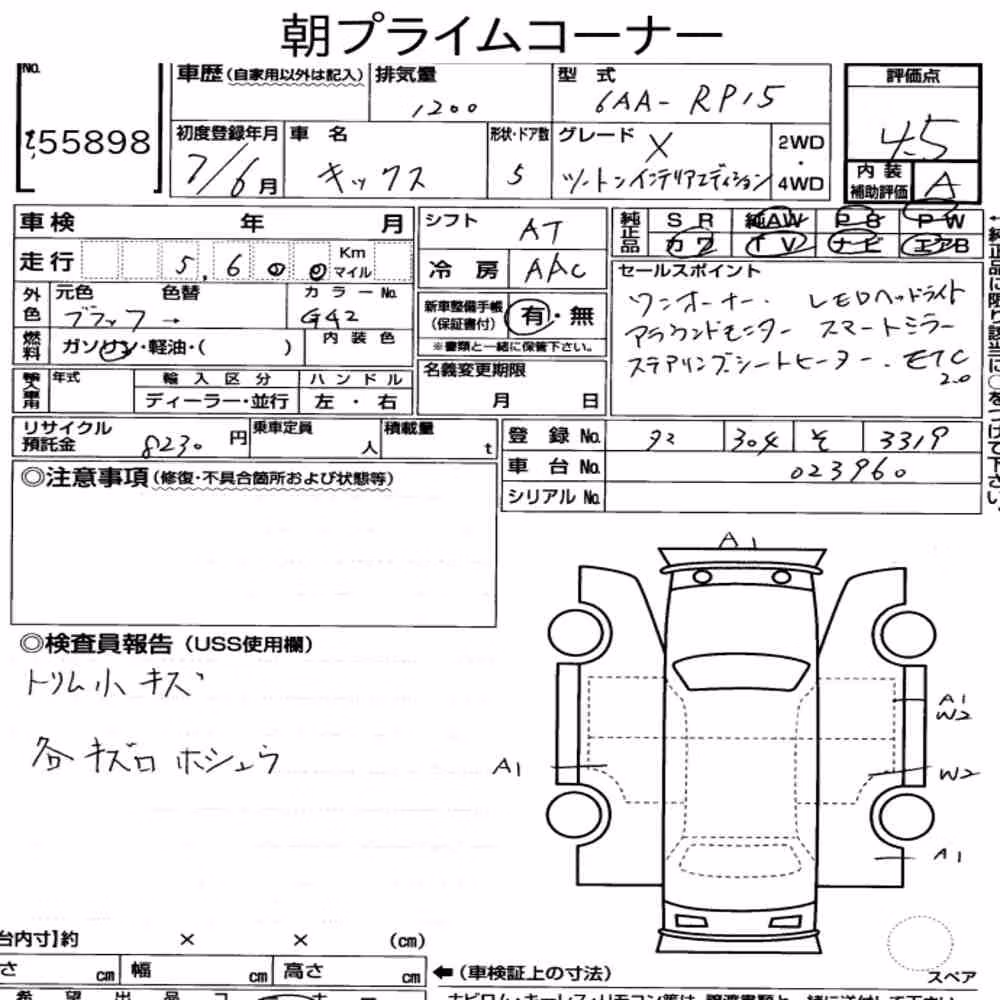 朝プライムコーナー
No.
55898
車歴(自家用以外は記入) 排気量 1200 型 式 6AA-RP15
評価点 4.5
初度登録年月 7/6月 車 名 キックス 形状・ドア数 5 グレード X ツートンインテリアエディション 2WD・4WD
内装補助評価 A
車検 年 月 シフト AT 純正品 SR 純AW PS PW
カワ TV ナビ エアB
走行 5,600 Km マイル 冷房 AAC
セールスポイント
ワンオーナー. LEDヘッドライト
アラウンドモニター スマートミラー
ステアリングシートヒーター. ETC 2.0
外色 元色 ブラック→ 色替 カラーNo. G42
新車整備手帳(保証書付) 有・無
※書類と一緒に保管下さい。
燃料 ガソリン・軽油・( ) 内装色
年式 輸入区分 ハンドル 名義変更期限
ディーラー・並行 左・右 月 日
リサイクル預託金 8230円 乗車定員 人 積載量 t
登録No. 304 そ 3319
車台No. 023960
シリアルNo.
←純正品に限り該当に○をつけて下さい。
◎注意事項(修復・不具合箇所および状態等)
◎検査員報告(USS使用欄)
トリム小キズ
各キズロホシュウ
A1
A1
W2
A1
W2
A1
台内寸】約 × × (cm)
さ cm 幅 cm 高さ cm
←(車検証上の寸法)
スペア
希望出品コ